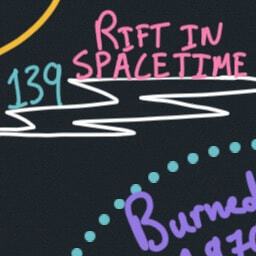 RIFT IN
SPACETIME
139
Burned